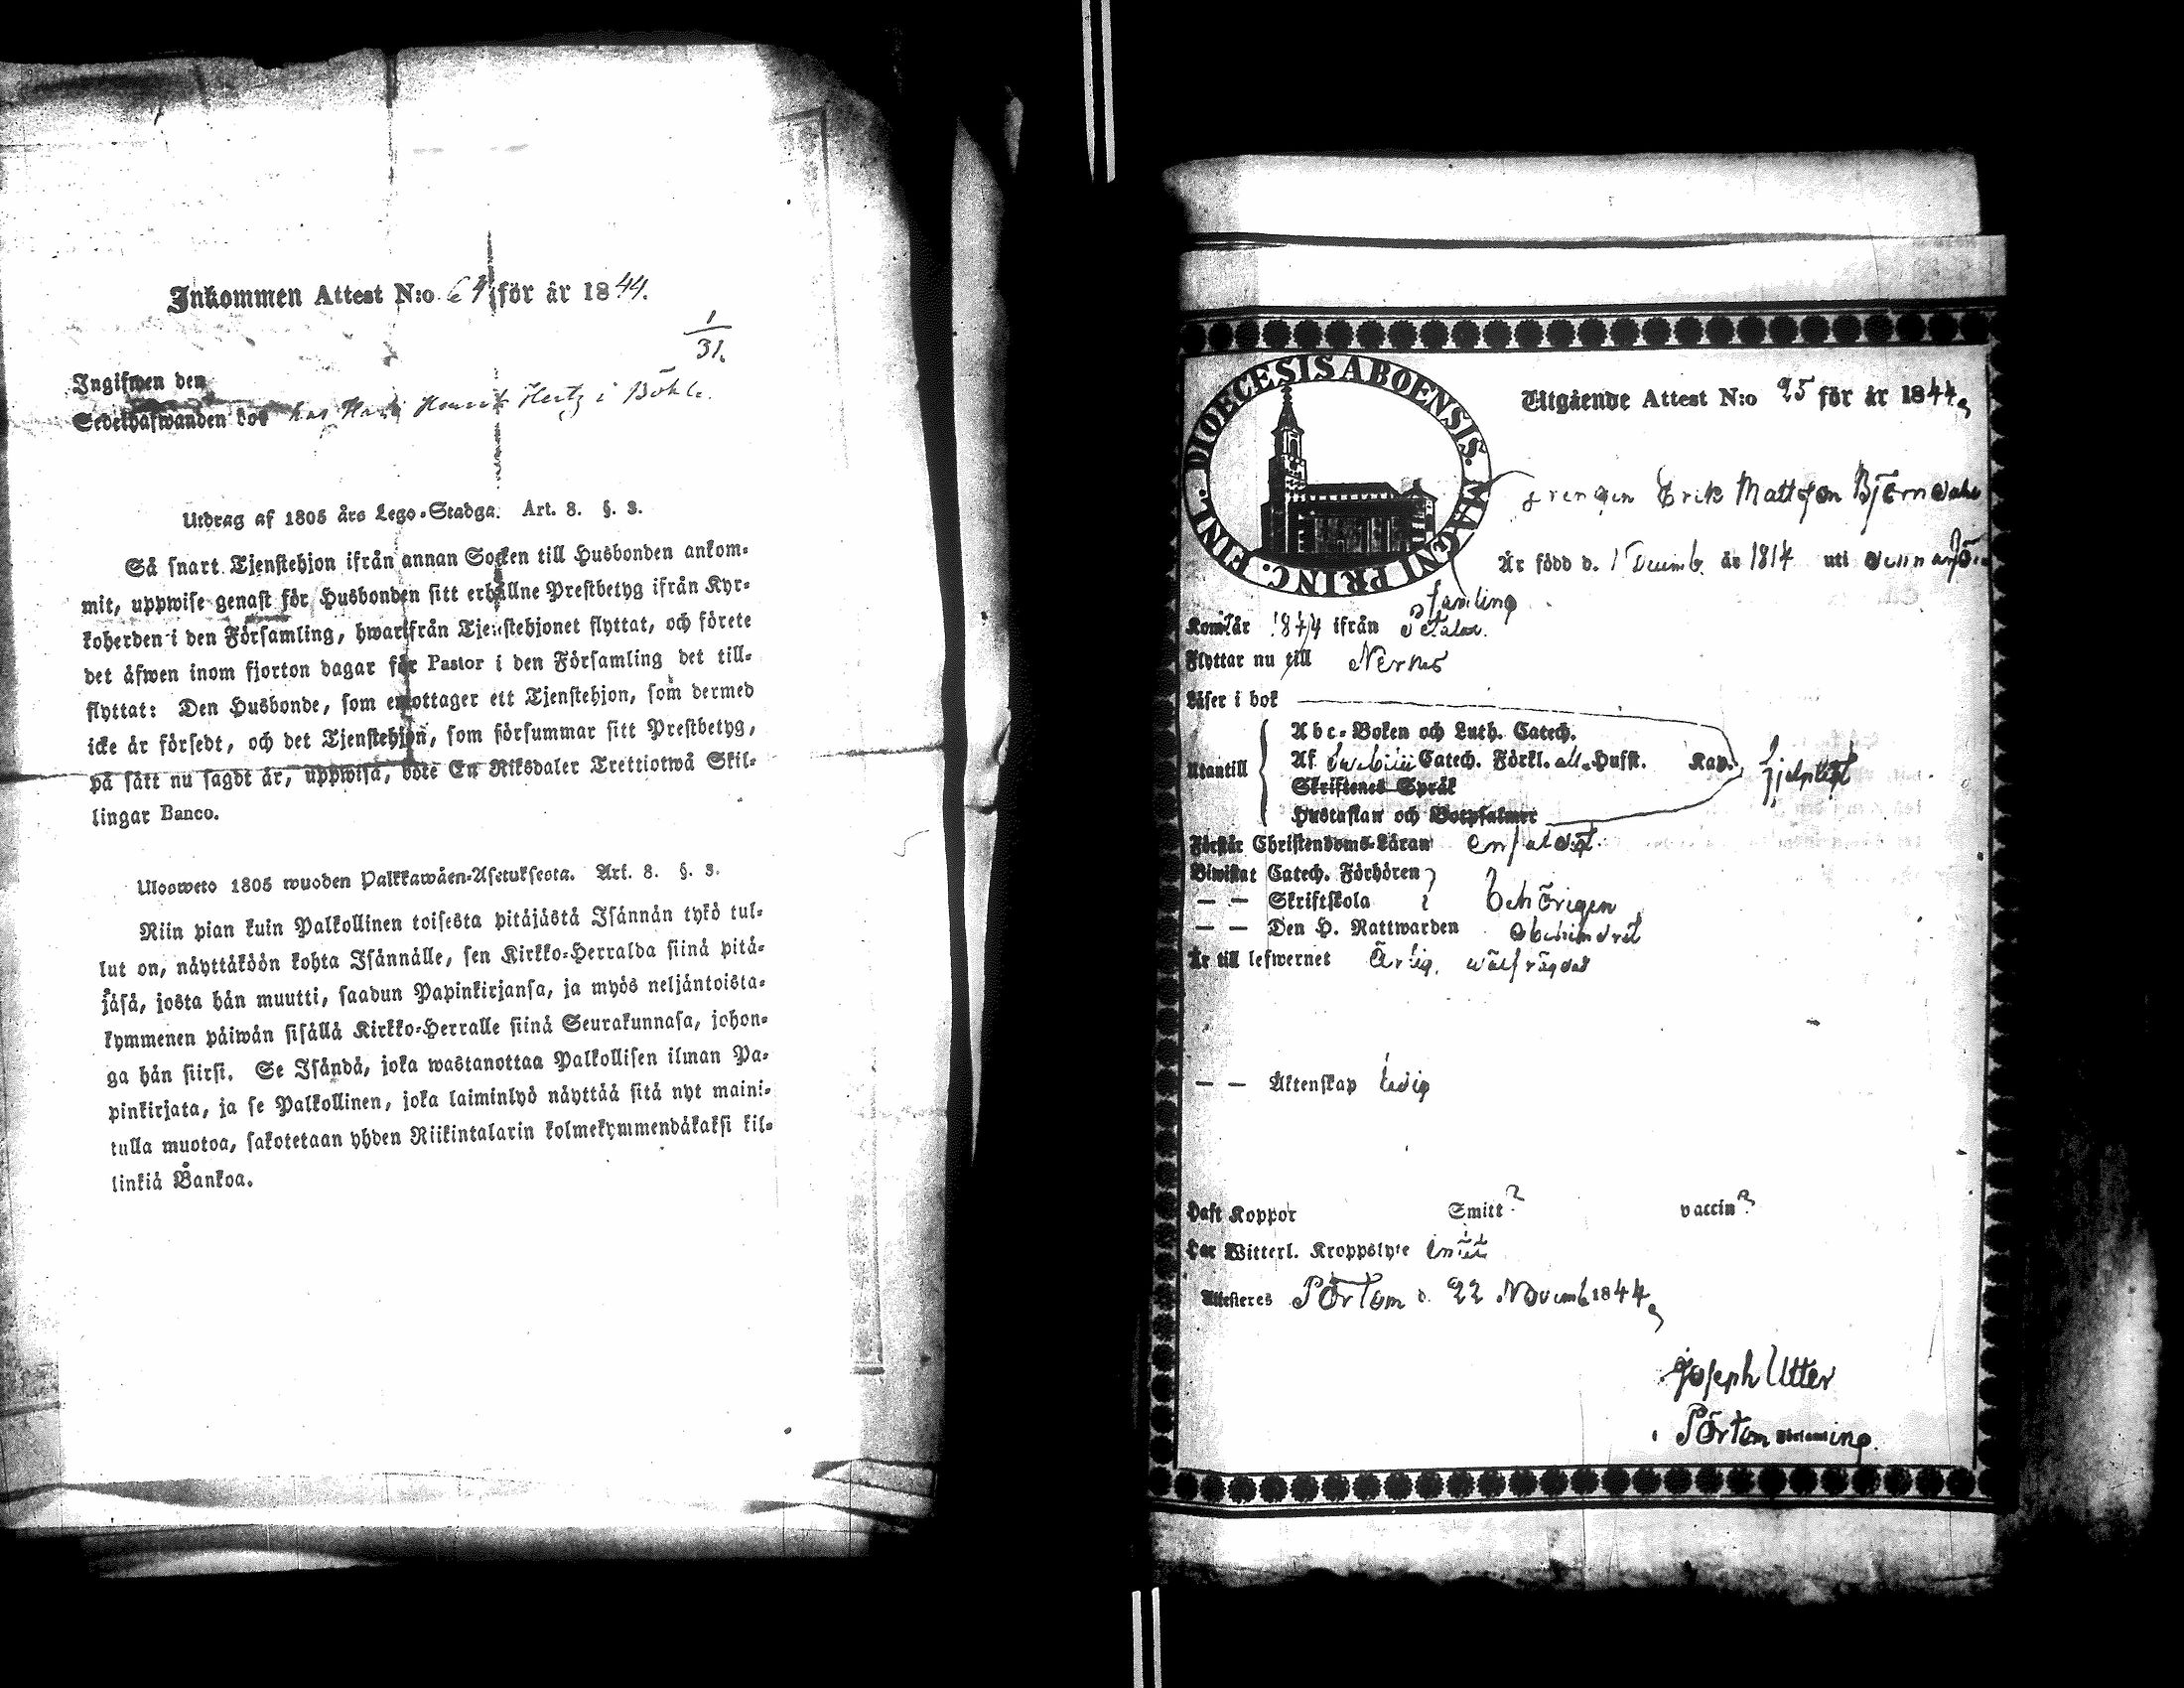 Inkommen Attest N:o 64 för år 1844.
1
31.
Ingifwen den
Sedelhafwanden bor hos Hertz i Böhle.
Utdrag af 1805 års Lego-Stadga. Art. 8. §. 3.
Så snart Tjenstehjon ifrån annan Socken till Husbonden ankom-
mit, uppwise genast för Husbonden sitt erhållne Prestbetyg ifrån Kyr-
koherden i den Församling, hwarifrån Tjenstehjonet flyttat, och förete
det äfwen inom fjorton dagar för Pastor i den Församling det till-
flyttat: Den Husbonde, som emottager ett Tjenstehjon, som dermed
icke är försedt, och det Tjenstehjon, som försummar sitt Prestbetyg,
på sätt nu sagdt är, uppwisa, böte En Riksdaler Trettiotwå Skil-
lingar Banco.
Ulosweto 1805 wuoden Palkkawäen-Asetuksesta. Art. 8. §. 3.
Niin pian kuin Palkollinen toisesta pitäjästä Isännän tykö tul-
lut on, näyttäköön kohta Isännälle, sen Kirkko-Herralda siinä pitä-
jäsä, josta hän muutti, saadun Papinkirjansa, ja myös neljäntoista-
kymmenen päiwän sisällä Kirkko-Herralle siinä Seurakunnasa, johon-
ga hän siirsi. Se Isändä, joka wastanottaa Palkollisen ilman Pa-
pinkirjata, ja se Palkollinen, joka laiminlyö näyttää sitä nyt maini-
tulla muotoa, sakotetaan yhden Riikintalarin kolmekymmendäkaksi kil-
linkiä Bankoa.
DIOECESIS ABOENSIS. MAGNI PRINC. FINL.
Utgående Attest N:o 25 för år 1844,
Drengen Erik Mattsson Björndahl
Är född d. 1 Decemb. år 1814 uti denna För-
samling
Kom år 1844 ifrån Petalax.
Flyttar nu till Nerpes
Läser i bok
Utantill
Abc-Boken och Luth. Catech.
Af Swebilii Catech. Förkl. all. Hufst. Kap.
Skriftenes Språk
Hustaflan och Botpsalmer
hjelpligt
Förstår Christendoms-Läran enfaldigt.
Biwistat Catech. Förhören
— — Skriftskola behörigen
— — Den H. Nattwarden obehindrat
Är till lefwernet Ärlig, wälfrägdad
— — Äktenskap ledig
Haft Koppor Smitt? vaccin?
Har Witterl. Kroppslyte
Attesteres Pörtom d. 22 Novemb. 1844,
Joseph Utter
i Pörtom Församling.